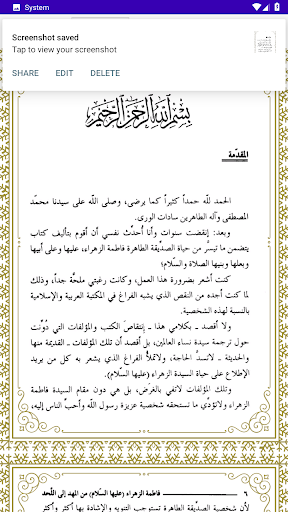 System
Screenshot saved
Tap to view your screenshot
SHARE EDIT DELETE
بسم الله الرحمن الرحيم
المقدّمة
الحمد للّه حمداً كثيراً كما يرضى، وصلى اللّه على سيدنا محمّد
المصطفى وآله الطاهرين سادات الورى.
وبعد: إنقضت سنوات وأنا أُحدّث نفسي أن أقوم بتأليف كتاب
يتضمن ما تيسر من حياة الصدِّيقة الطاهرة فاطمة الزهراء، عليها وعلى أبيها
وبعلها وبنيها الصلاة والسلام؟
كنت أشعر بضرورة هذا العمل، وكانت رغبتي ملحَّة جداً، وذلك
لما كنت أجده من النقص الذي يشبه الفراغ في المكتبة العربية والإسلامية
بالنسبة لهذه الشخصية.
ولا أقصد ـ بكلامي هذا ـ إنتقاصَ الكتب والمؤلفات التي دُوِّنت
حول ترجمة سيدة نساء العالمين، بل أقصد أن تلك المؤلفات ـ القديمة منها
والحديثة ـ لاتسدُّ الحاجة، ولاتملأُ الفراغ الذي يشعر به كل من يريد
الإطلاع على حياة السيدة الزهراء (عليها السلام).
وتلك المؤلفات لاتفي بالغرض، بل هي دون مقام السيدة فاطمة
الزهراء ولاتؤدِّي ما تستحقه شخصية عزيزة رسول اللّه وأحبّ الناس إليه،
٦ فاطمة الزهراء (عليها السلام) من المهد إلى اللَّحد
لأن شخصية الصدِّيقة الطاهرة تستوجب التنويه والإشادة بها أكثر وأكثر